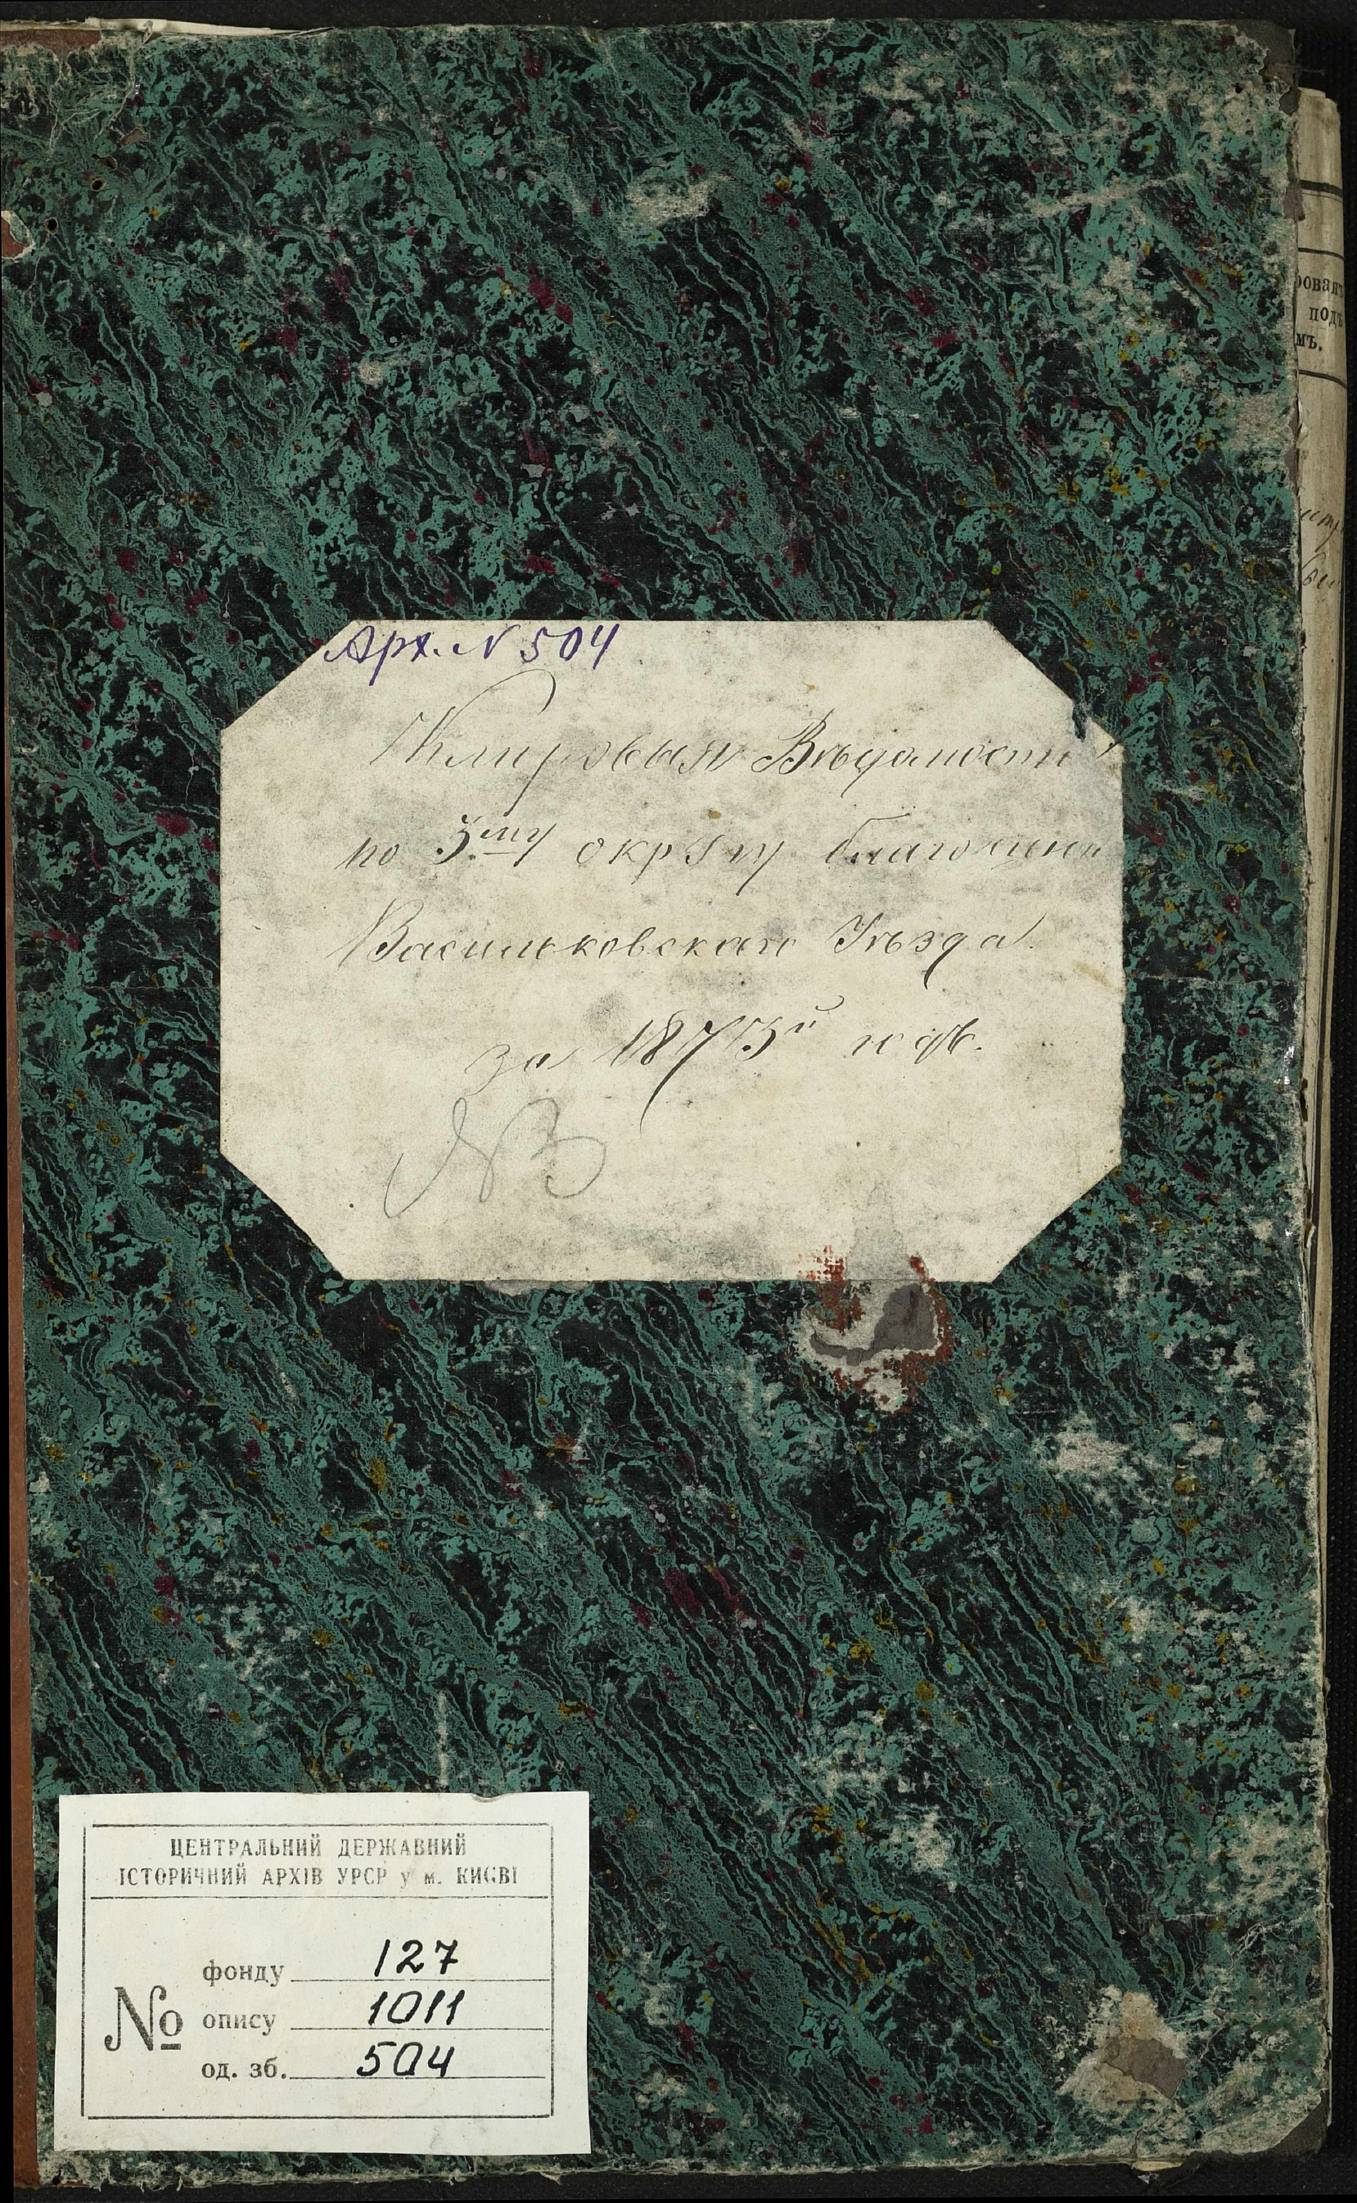 Арх. N 504
Клировыя Вѣдомости
по 3.му округу благочинія
Васильковскаго Уѣзда.
за 1873й годъ.
NB
ЦЕНТРАЛЬНИЙ ДЕРЖАВНИЙ
ІСТОРИЧНИЙ АРХІВ УРСР у м. КИЄВІ
№
фонду 127
опису 1011
од. зб. 504
подъ
мъ.